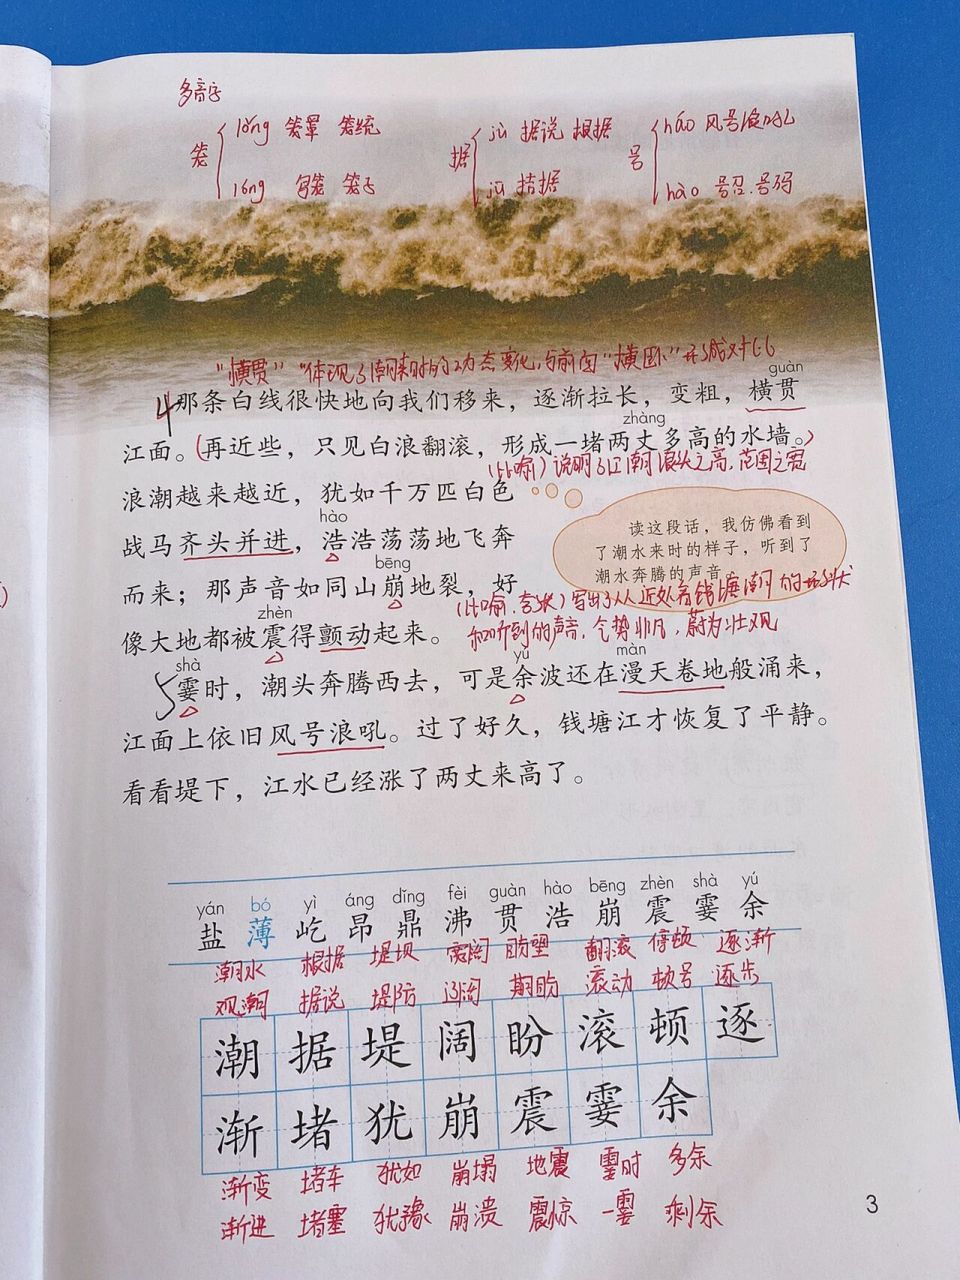 多音字
笼 lǒng 笼罩 笼统
lóng 鸟笼 笼子
据 jù 据说 根据
jū 拮据
号 háo 风号浪吼
hào 号召、号码
"横贯" "体现了潮来时的动态变化,与前面"横卧"形成对比
guàn
4 那条白线很快地向我们移来，逐渐拉长，变粗，横贯
zhàng
江面。(再近些，只见白浪翻滚，形成一堵两丈多高的水墙。)
(比喻)说明了江潮浪头之高,范围之宽
浪潮越来越近，犹如千万匹白色
hào
战马齐头并进，浩浩荡荡地飞奔
bēng
而来；那声音如同山崩地裂，好
zhèn
像大地都被震得颤动起来。
读这段话，我仿佛看到
了潮水来时的样子，听到了
潮水奔腾的声音。
(比喻、夸张)写出了从近处看钱塘潮的形状
和听到的声音,气势非凡,蔚为壮观
shà yú màn
霎时，潮头奔腾西去，可是余波还在漫天卷地般涌来，
江面上依旧风号浪吼。过了好久，钱塘江才恢复了平静。
看看堤下，江水已经涨了两丈来高了。
yán bó yì áng dǐng fèi guàn hào bēng zhèn shà yú
盐 薄 屹 昂 鼎 沸 贯 浩 崩 震 霎 余
潮水 根据 堤坝 宽阔 盼望 翻滚 停顿 逐渐
观潮 据说 堤防 辽阔 期盼 滚动 顿号 逐步
潮 据 堤 阔 盼 滚 顿 逐
渐 堵 犹 崩 震 霎 余
渐变 堵车 犹如 崩塌 地震 霎时 多余
渐进 堵塞 犹豫 崩溃 震惊 一霎 剩余
3